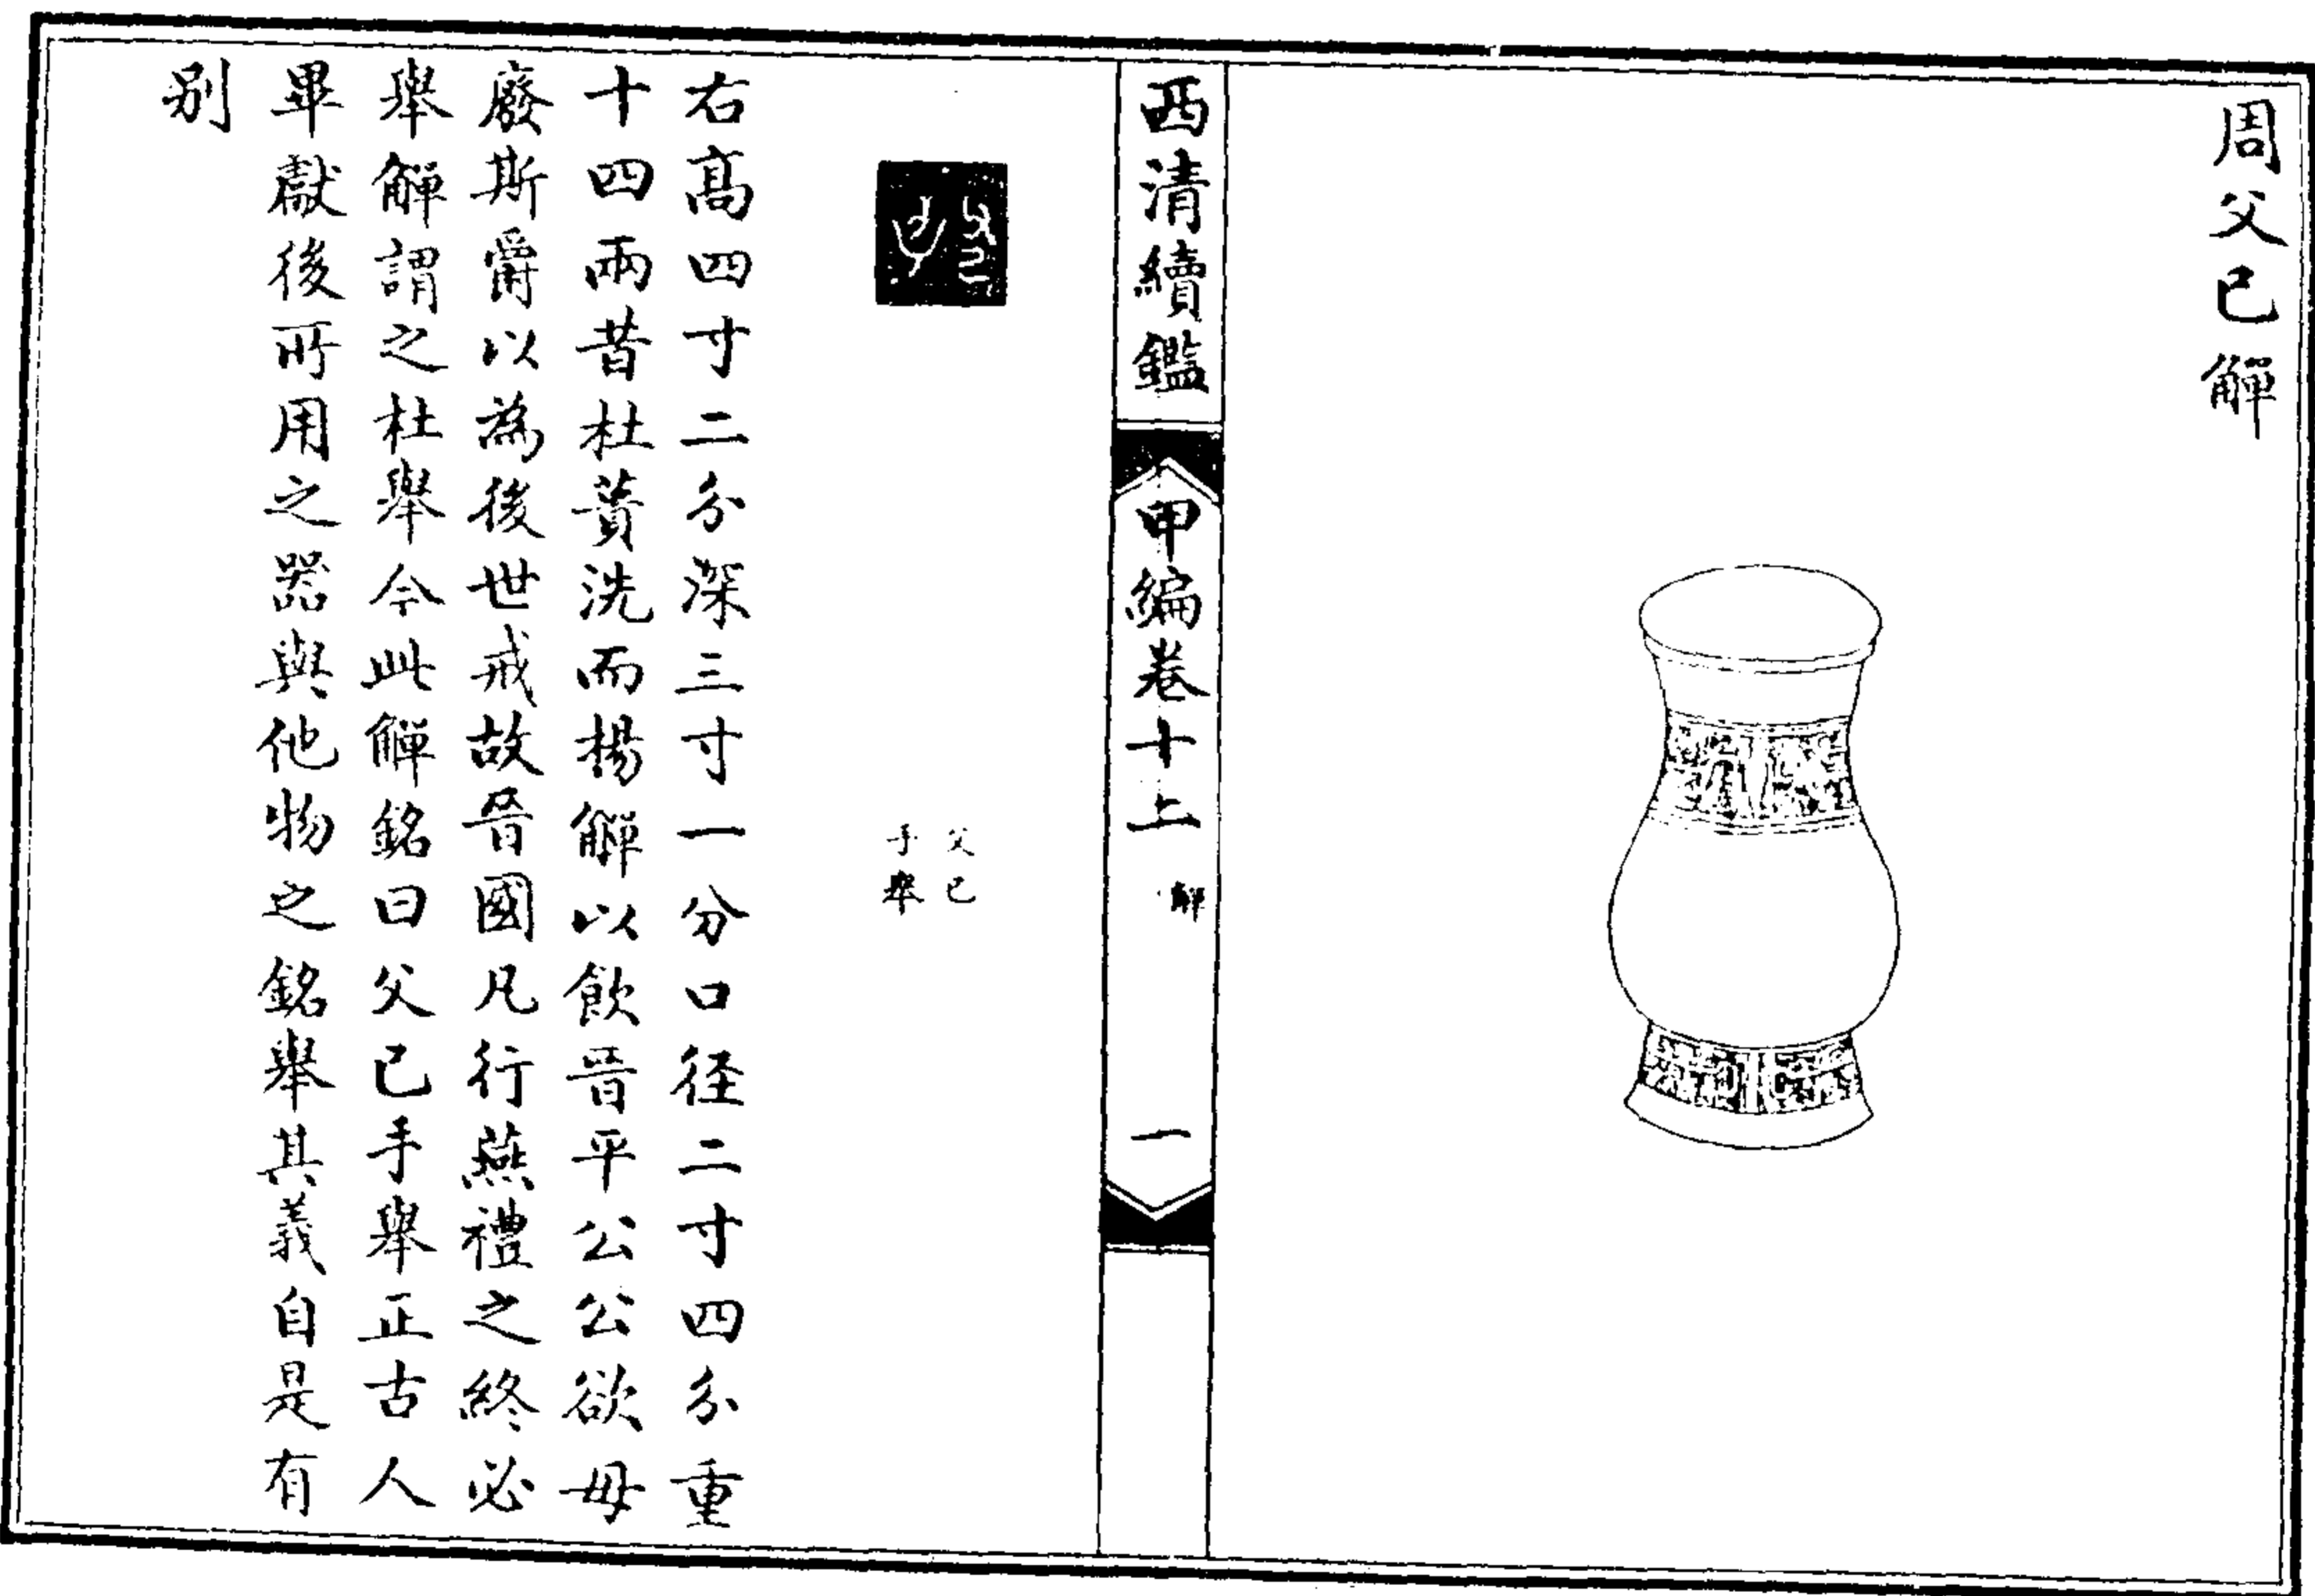 周父己觶
西清續鑑 甲編卷十上 觶 一
父己
手舉
右髙四寸二分深三寸一分口徑二寸四分重
十四兩昔杜蕢洗而揚觶以飲晉平公公欲毋
廢斯爵以為後世戒故晉國凡行燕禮之終必
舉觶謂之杜舉今此觶銘曰父己手舉正古人
畢獻後所用之器與他物之銘舉其義自是有
别